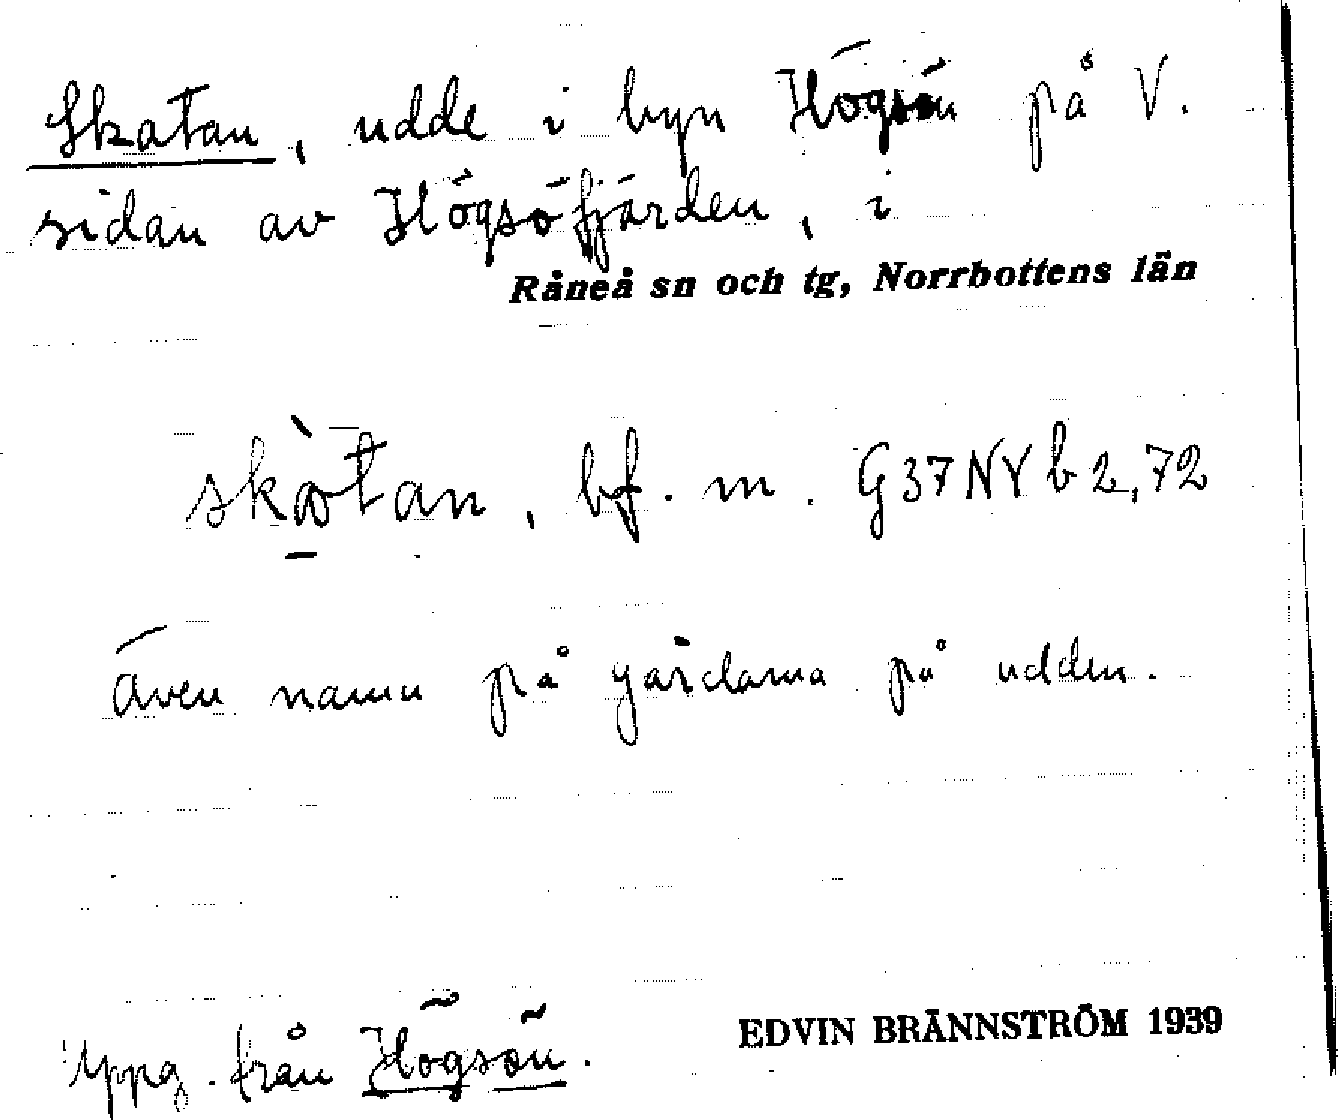 Skatan, udde i byn Högsön på V.
sidan av Högsöfjärden, i
Råneå sn och tg, Norrbottens län
skàtan, bf. m. G37NVb2,72
även namn på gårdarna på udden.
Uppg. från Högsön.
EDVIN BRÄNNSTRÖM 1939